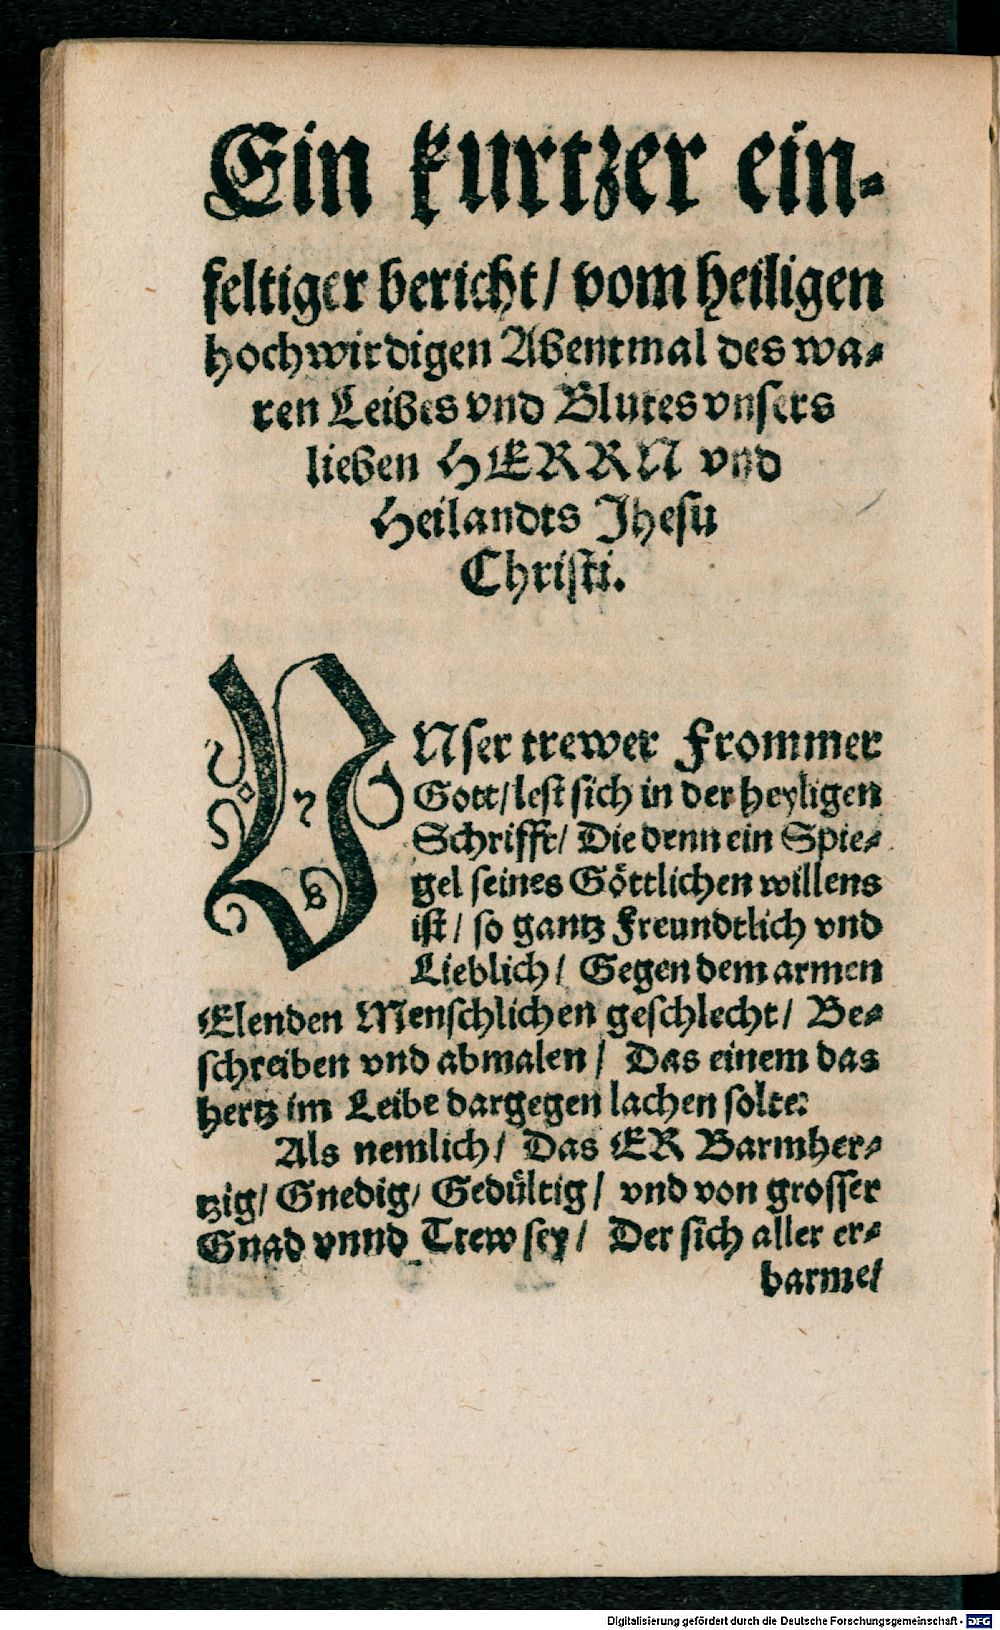 Ein kurtzer ein-
feltiger bericht/ vom heiligen
hochwirdigen Abentmal des wa-
ren Leibes vnd Blutes vnsers
lieben HERRN vnd
Heilandts Jhesu
Christi.
VNser trewer Frommer
Gott/ lest sich in der heyligen
Schrifft/ Die denn ein Spie-
gel seines Göttlichen willens
ist/ so gantz Freundtlich vnd
Lieblich/ Gegen dem armen
Elenden Menschlichen geschlecht/ Be-
schreiben vnd abmalen/ Das einem das
hertz im Leibe dargegen lachen solte:
Als nemlich/ Das ER Barmher-
tzig/ Gnedig/ Gedültig/ vnd von grosser
Gnad vnnd Trew sey/ Der sich aller er-
barmet
Digitalisierung gefördert durch die Deutsche Forschungsgemeinschaft - DFG